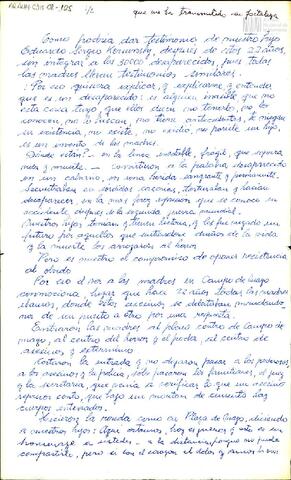 que me ha transmitido su fortaleza
1/2
Como podría dar testimonio de nuestro hijo
Eduardo Sergio, después de estos 22 años,
sin integrar a los 30000 desaparecidos, pues todas
las madres tienen testimonios similares.
¿Por eso quisiera explicar, y explicarme a entender
que es un desaparecido: es alguien inasible que no
está cuya fuga que ellos dicen no tenerlo, no lo
conocen, no lo buscan, no tiene antecedentes, le niegan
su existencia, no existe, no existió, no parió un hijo,
es un invento de las madres.
Dónde están? - en la línea, inestable, frágil, que separa
vida y muerte - convirtieron a la palabra desaparecido
en un calvario, en una herida sangrante y permanente.
Secuestraban en sórdidas cacerías, torturaban y hacían
desaparecer, en la más feroz represión que se conoce en
occidente después de la segunda guerra mundial.
Nuestros hijos tenían y tienen historia, y les fue negado un
futuro por aquellos que sintiéndose dueños de la vida
y la muerte los arrojaron al horror.
Pero es nuestro el compromiso de oponer resistencia
al olvido
Por eso el ver a las madres en Campo de mayo
conmociona, lugar que hace 22 años todas las madres
íbamos, donde estos asesinos se deleitaban mandándo
nos de un puesto a otro por una respuesta.
Entraron las madres al mismo centro de Campo de
mayo, al centro del horror y el poder, al centro de
asesinos y exterminio
Cortaron la entrada y no dejaron pasar a las personas,
a los asesinos y la policía, sólo pasaron los familiares, el juez
y la secretaria, que venía a verificar lo que un asesino
represor contó, que bajo un montón de cemento hay
cuerpos enterrados.
Hicieron la ronda como en Plaza de mayo, diciendo
a nuestros hijos: Aquí estamos, hoy es jueves y este es un
homenaje a ustedes - a la distancia porque no pude
compartirlo, pero si con el corazón el dolor y